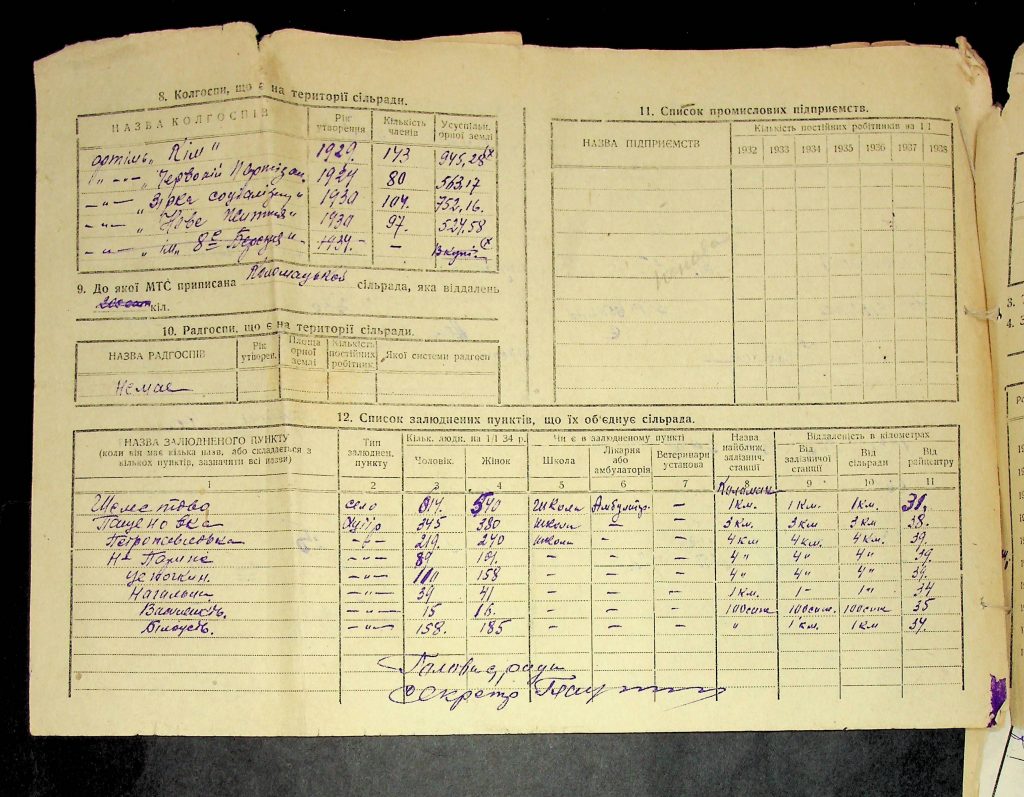 8. Колгоспи, що є на території сільради.
НАЗВА КОЛГОСПІВ
Рік утворення
Кількість членів
Усуспільн. орної землі
артіль „Кім" 1929. 143 945,28
-"- „Червоний Партізан. 1924 80 563,17
-"- „Зірка соціалізму" 1930 104. 752,16.
-"- „Нове життя" 1930 97. 524,58
-"- „ім. 8го Березня"- 1934.- - Вкупі
9. До якої МТС приписана Коломацької сільрада, яка віддалень
кіл.
10. Радгоспи, що є на території сільради.
НАЗВА РАДГОСПІВ
Рік утворен.
Площа орної землі
Кількість постійних робітник.
Якої системи радгосп
Немає
11. Список промислових підприємств.
НАЗВА ПІДПРИЄМСТВ
Кількість постійних робітників на 1/I
1932 1933 1934 1935 1936 1937 1938
12. Список залюднених пунктів, що їх об'єднує сільрада.
НАЗВА ЗАЛЮДНЕНОГО ПУНКТУ
(коли він має кілька назв, або складається з
кількох пунктів, зазначити всі назви)
Тип залюднен. пункту
Кільк. люди. на 1/I 34 р.
Чоловік.
Жінок
Чи є в залюдненому пункті
Школа
Лікарня або амбулаторія
Ветеринарн установа
Назва найближ. залізнич. станції
Віддаленість в кілометрах
Від залізничної станції
Від сільради
Від райцентру
1 2 3 4 5 6 7 8 9 10 11
Коломак
село 614. 540 школа Амбулатор. - 1 км. 1 км. 1 км. 31.
хутір 345 380 школа - - 3 км 3 км 3 км 28.
-"- 219. 240 школа - - 4 км 4 км. 4 км. 39.
-"- 89 101. - - - 4" 4" 4" 39.
-"- 110 158 - - - 4" 4" 4" 39.
-"- 39 41 - - - 1 км. 1-"- 1-"- 34
-"- 15 16. - - - 100 саж 100 саж. 100 саж 35
Білоусів. -"- 158. 185 - - - " 1 км. 1 км 34.
Голова с/ради
Секретар